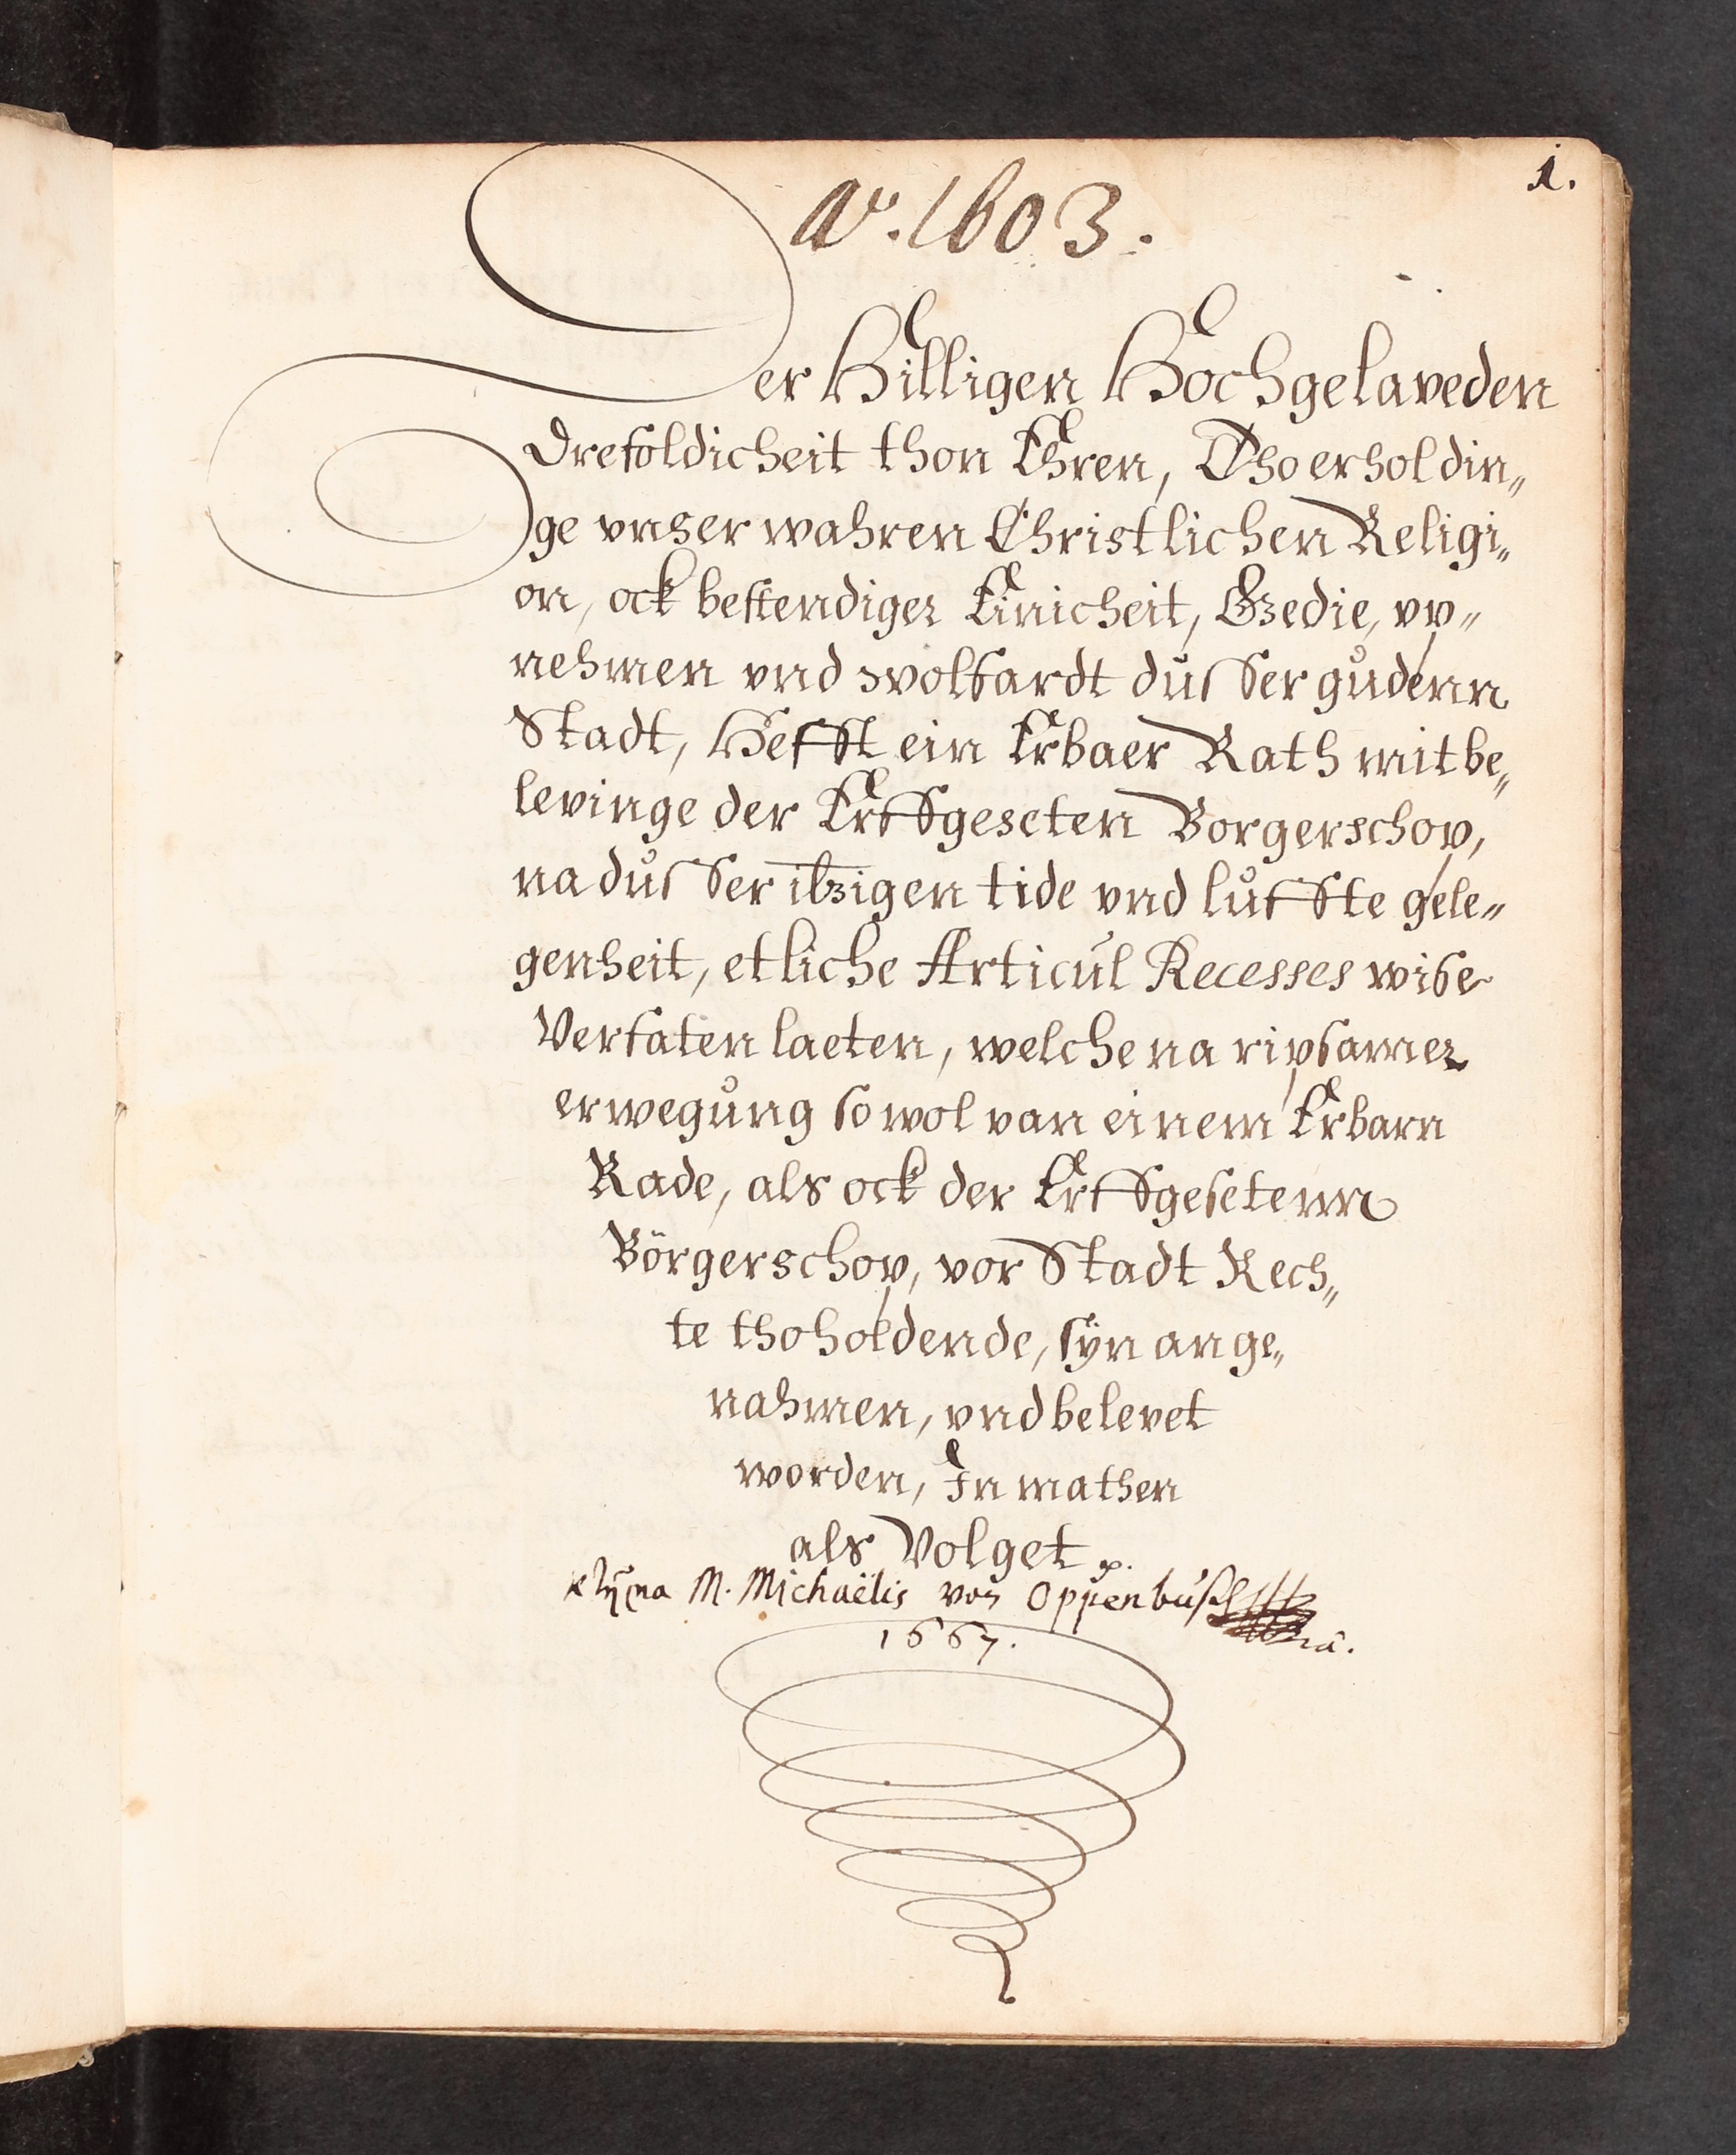 1.
Aº. 1603.
Der Hilligen Hochgelaveden
Drefoldicheit thon Ehren, Tho erholdin„
ge vnser wahren Christlichen Religi„
on, ock bestendiger Einicheit, Gedie, vp„
nehmen vnd wolfardt dusser gudenn
Stadt, Hefft ein Erbaer Rath mit be„
levinge der Erffgeseten Borgerschop,
na dusser itzigen tide vnd lüffte gele„
genheit, etliche Articul Recesses wise
Verfaten laeten, welche na ripsamer
erwegung so wol van einem Erbarn
Rade, als ock der Erffgesetenn
Börgerschop, vor Stadt Rech„
te thoholdende, sÿn ange„
nahmen, vnd belevet
worden, In mathen
als Volget
M. Michaëlis von Oppenbusch
1667.